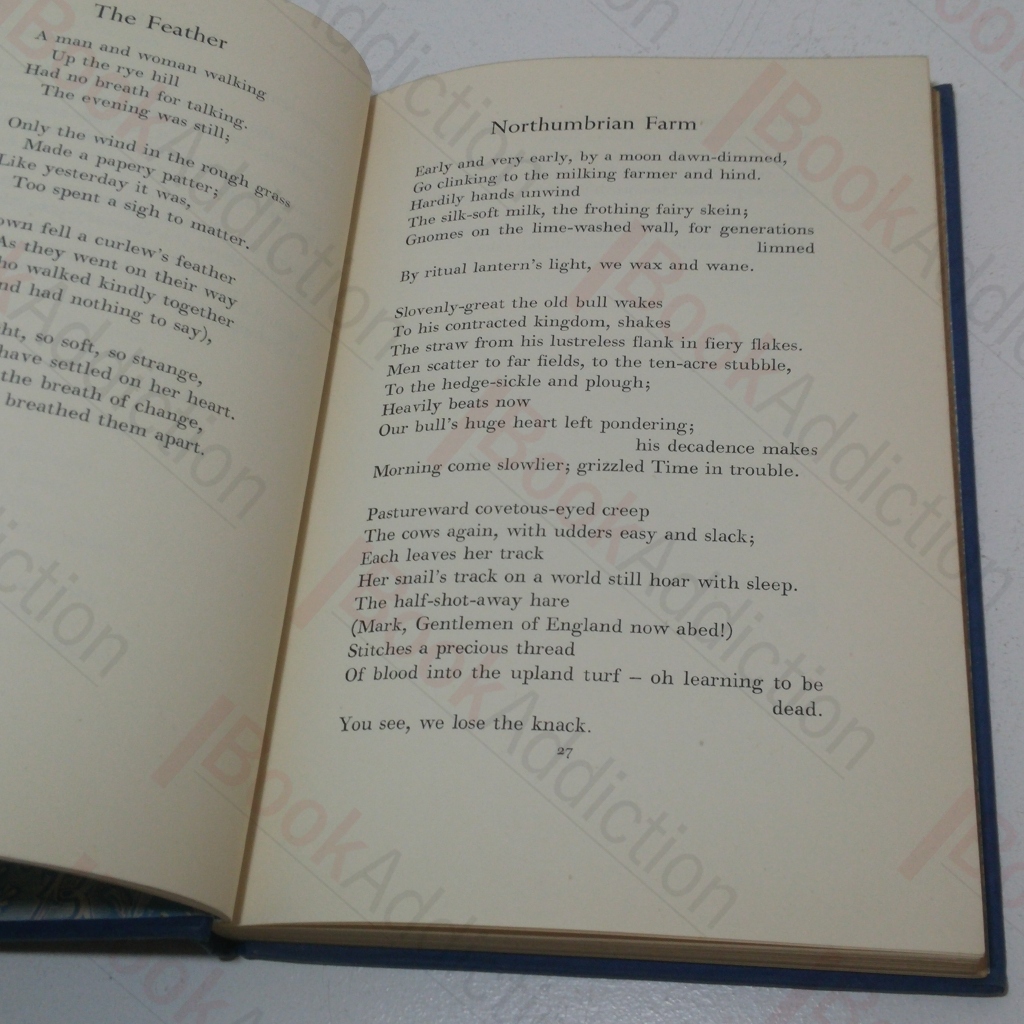 The Feather
A man and woman walking
Up the rye hill
Had no breath for talking.
The evening was still;
Only the wind in the rough grass
Made a papery patter;
Like yesterday it was,
Too spent a sigh to matter.
own fell a curlew's feather
As they went on their way
ho walked kindly together
nd had nothing to say),
ht, so soft, so strange,
have settled on her heart.
the breath of change,
breathed them apart.
Northumbrian Farm
Early and very early, by a moon dawn-dimmed,
Go clinking to the milking farmer and hind.
Hardily hands unwind
The silk-soft milk, the frothing fairy skein;
Gnomes on the lime-washed wall, for generations
limned
By ritual lantern's light, we wax and wane.
Slovenly-great the old bull wakes
To his contracted kingdom, shakes
The straw from his lustreless flank in fiery flakes.
Men scatter to far fields, to the ten-acre stubble,
To the hedge-sickle and plough;
Heavily beats now
Our bull's huge heart left pondering;
his decadence makes
Morning come slowlier; grizzled Time in trouble.
Pastureward covetous-eyed creep
The cows again, with udders easy and slack;
Each leaves her track
Her snail's track on a world still hoar with sleep.
The half-shot-away hare
(Mark, Gentlemen of England now abed!)
Stitches a precious thread
Of blood into the upland turf – oh learning to be
dead.
You see, we lose the knack.
27
BookAddiction